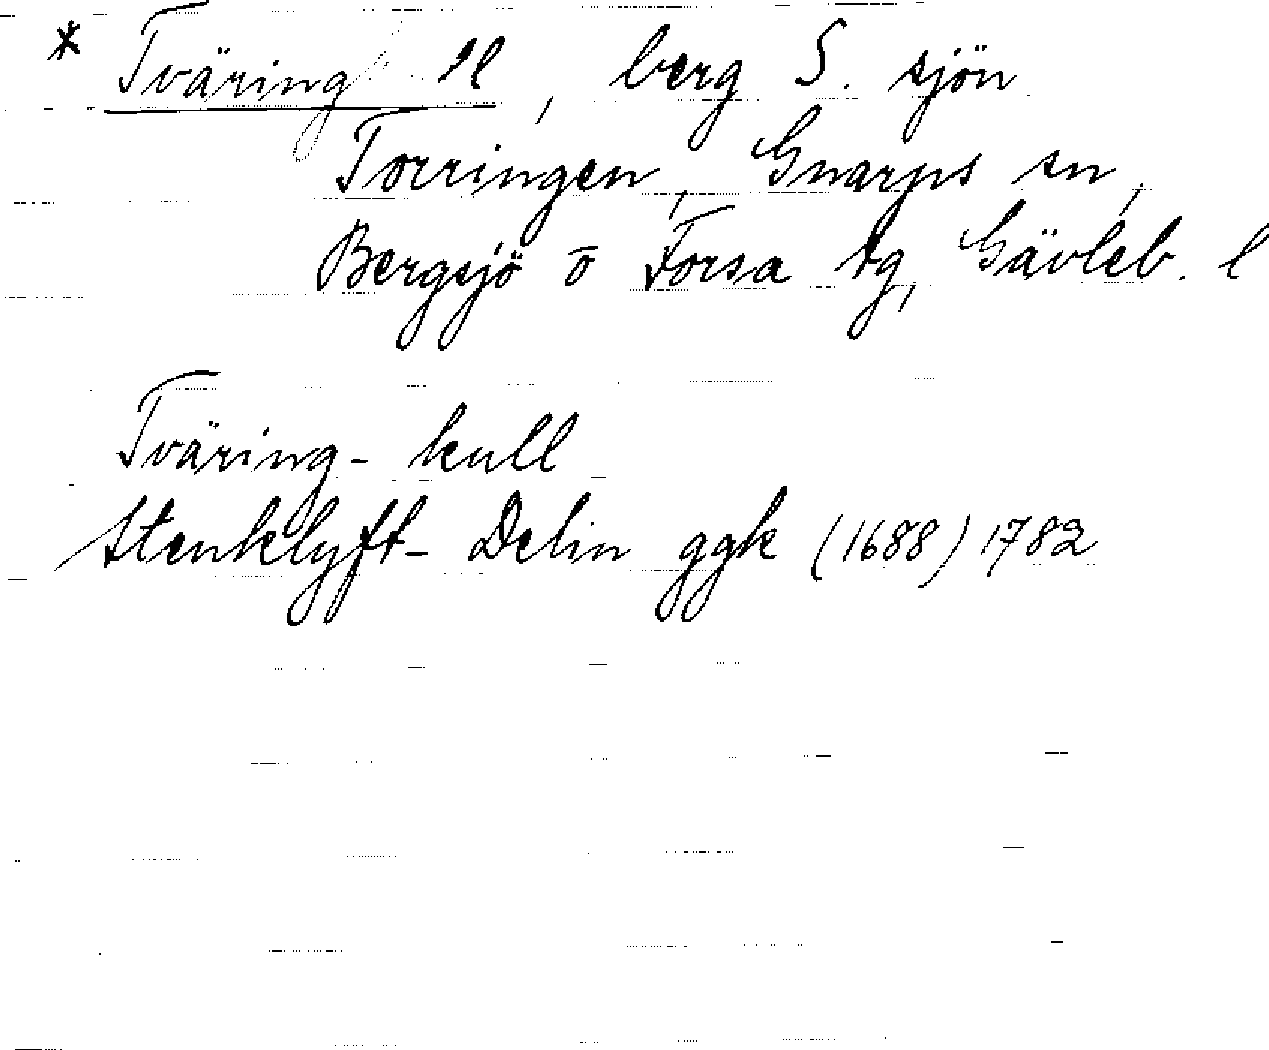 * Tväring ll, berg S. sjön
Torringen, Gnarps sn,
Bergsjö o Forsa tg, Gävleb. l
Tväring- kull
Stenklyft- Delin ggk (1688) 1782